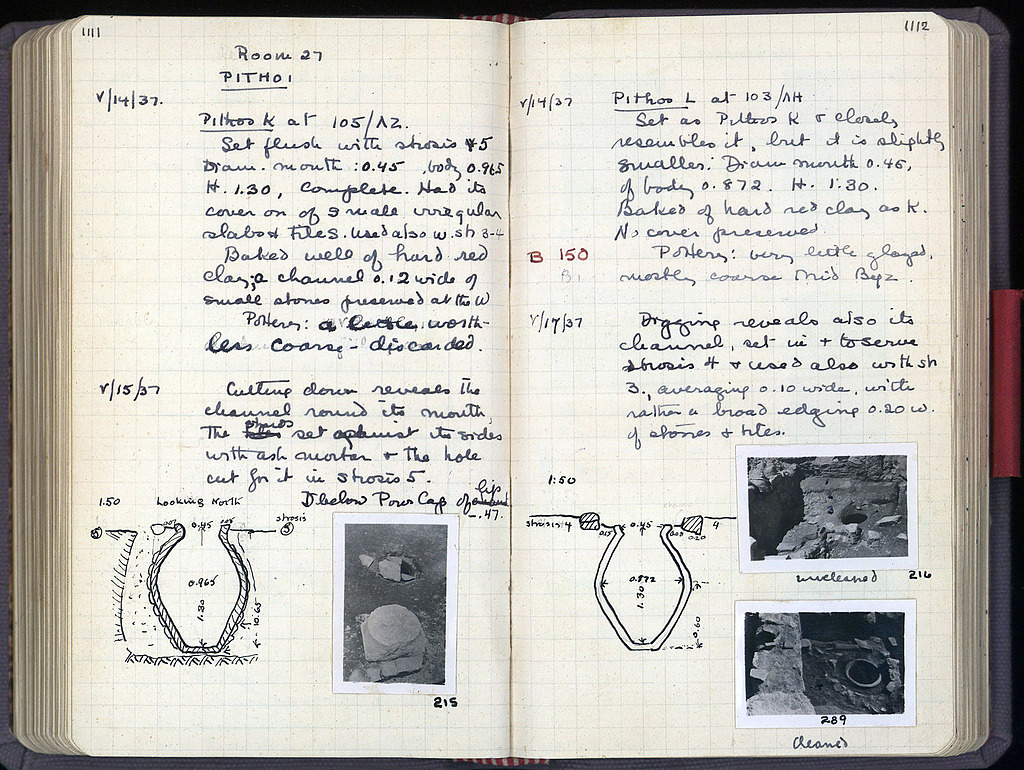 1111
Room 27
PITHOI
V/14/37.
Pithos K at 105/ΛΖ.
Set flush with strosis 5
Diam. mouth: 0.45, body 0.965
H. 1.30, Complete. Had its
cover on of small irregular
slabs + tiles. Used also w. str 3-4
Baked well of hard red
clay; a channel 0.12 wide of
small stones preserved at the W
Pottery: a little, worth-
less coarse - discarded.
V/15/37
Cutting down reveals the
channel round its mouth
The sherds set against its sides
with ash mortar + the hole
cut for it in strosis 5.
D. below Poros Cap of lip
-.47.
1:50
Looking North
strosis
5
5
0.45
0.965
1.30
10.65
215
1112
V/14/37
Pithos L at 103/ΛΗ
Set as Pithos K + closely
resembles it, but it is slightly
smaller: Diam mouth 0.45,
of body 0.872. H. 1.30.
Baked of hard red clay as K.
No cover preserved
B 150
B1
Pottery: very little glazed,
mostly coarse Mid Byz.
V/17/37
Digging reveals also its
channel, set in + to serve
strosis 4 + used also with str
3, averaging 0.10 wide, with
rather a broad edging 0.20 w.
of stones + tiles.
1:50
strosis 4
0.15
0.45
0.05
0.20
4
0.872
1.30
0.60
uncleaned
216
289
cleaned